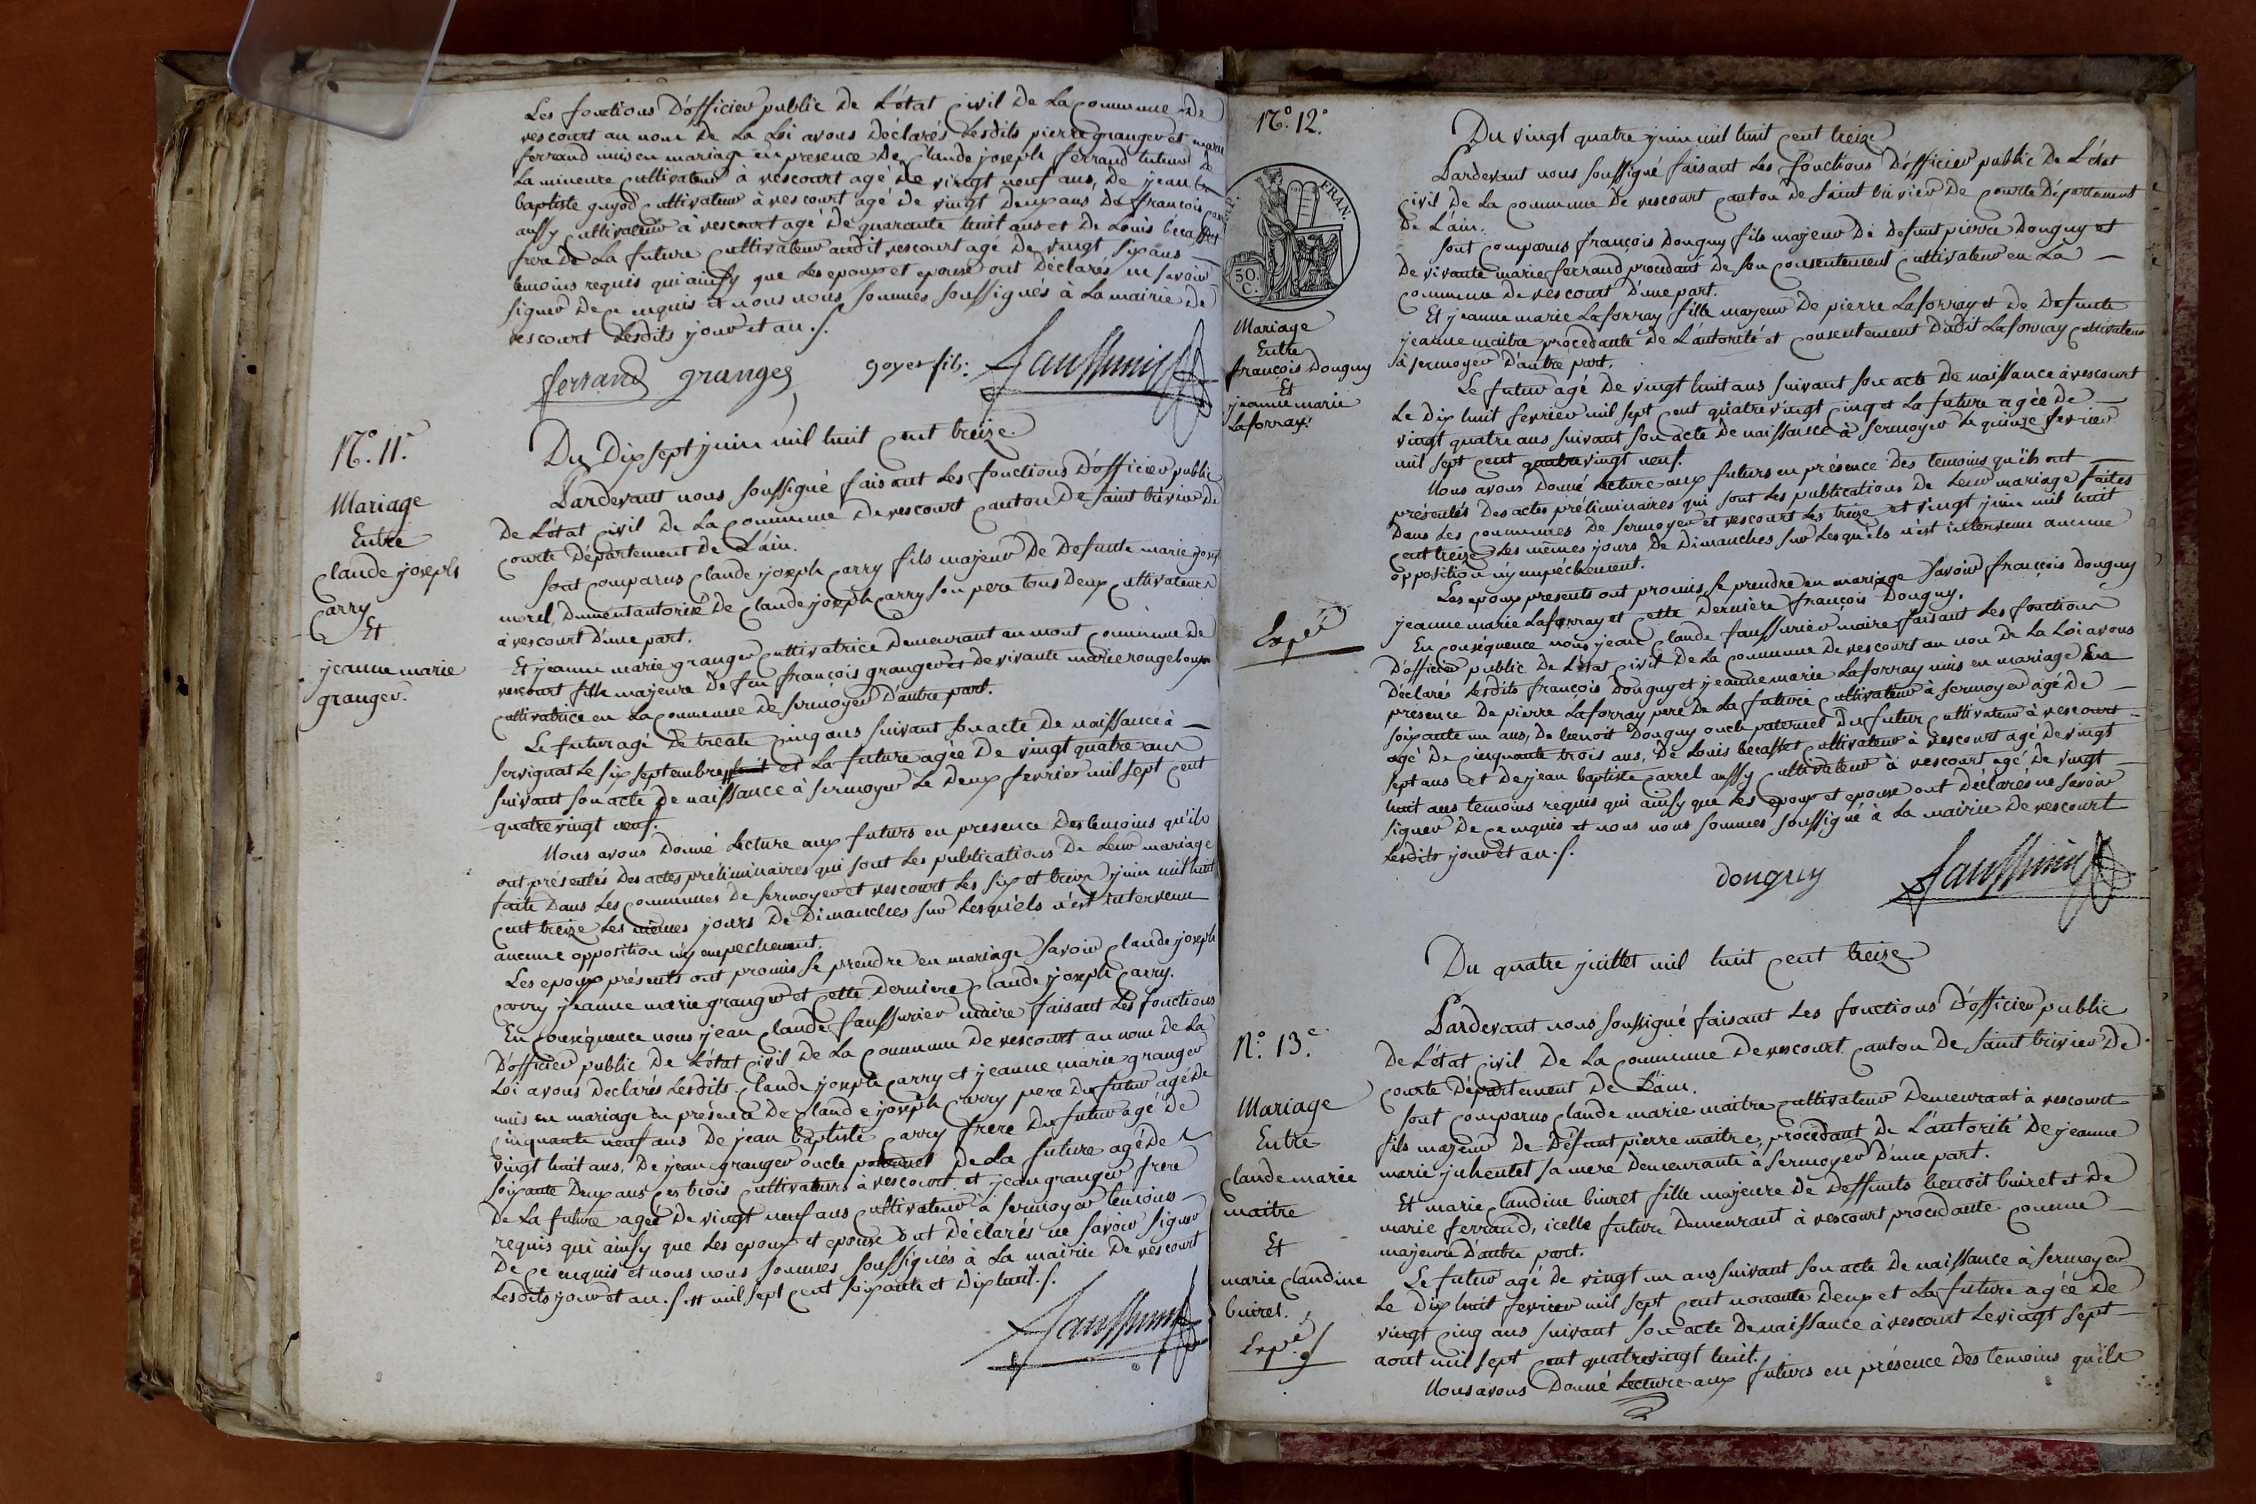 Les fonctions D'officier public De L'état Civil De La Commune De
vescourt au nom De La Loi avons Déclarés Lesdits pierre granger et marie
ferrand unis en mariage en presence De Claude joseph ferrand tuteur De
La mineure Cultivateur à vescourt agé De vingt neuf ans, De jean
baptiste guyod Cultivateur à vescourt agé De vingt Deux ans De francois
aussy Cultivateur à vescourt agé De quarante huit ans et De Louis becasset
frere De La future Cultivateur audit vescourt agé De vingt six ans
temoins requis qui ainsy que Les epoux et epouse ont Déclarés ne savoir
signer De Ce enquis et nous nous sommes soussignés à La mairie De
vescourt Lesdits jour et an ./.
ferrand granges goyer fils
N.° 11.e
Mariage
Entre
Claude joseph
Carry
Et
jeanne marie
granger.
Du Dix sept juin mil huit Cent treize.
Pardevant nous soussigné faisant Les fonctions D'officier public
De L'état Civil De La Commune De vescourt Canton De Saint trivier De
Courte Département De L'ain.
Sont Comparus Claude joseph Carry fils majeur De Defunte marie joseph
morel, Dument autorisé De Claude joseph Carry son pere tous Deux Cultivateurs
à vescourt D'une part.
Et jeanne marie granger Cultivatrice Demeurant au mont Commune De
vescourt fille majeure De feu françois granger et De vivante marie rougeboux
Cultivatrice en La Commune De sermoyer D'autre part.
Le futur agé De trente Cinq ans suivant son acte De naissance à
servignat Le six septembre et La future agée De vingt quatre ans
suivant son acte De naissance à sermoyer Le Deux fevrier mil sept Cent
quatre vingt neuf.
Nous avons Donné Lecture aux futurs en presence Des temoins qu'ils
ont présentés Des actes préliminaires qui sont Les publications De Leur mariage
faite Dans Les Communes De sermoyer et vescourt Les six et treize juin mil huit
Cent treize Les mêmes jours De Dimanches sur Lesquels n'est intervenu
aucune opposition n'y empechement.
Les epoux présents ont promis se prendre en mariage savoir Claude joseph
Carry jeanne marie granger et Cette Derniere Claude joseph Carry.
En Conséquence nous jean Claude faussurier maire faisant Les fonctions
D'officier public De L'état Civil De La Commune De vescourt au nom De La
Loi avons Declarés Lesdits Claude joseph Carry et jeanne marie granger
unis en mariage en présence De Claude joseph Carry pere Du futur agé De
Cinquante neuf ans De jean baptiste Carry frere Du futur agé De
vingt huit ans, De jean granger oncle paternel De La future agé De
soixante Deux ans Ces trois Cultivateurs à vescourt et jean granger frere
De La future agée De vingt neuf ans Cultivateur à sermoyer temoins
requis qui ainsy que Les epoux et epouse ont Déclarés ne savoir signer
De Ce enquis et nous nous sommes soussignés à La mairie De vescourt
Lesdits jour et an ./. # mil sept Cent soixante et Dix huit ./.
N.° 12.e
FRAN.
50.
C.
Mariage
Entre
françois Donguy
Et
jeanne marie
Laforray.
Expé
Du vingt quatre juin mil huit Cent treize
Pardevant nous soussigné faisant Les fonctions D'officier public De L'état
Civil De La Commune De vescourt Canton De Saint trivier De Courte Département
De L'ain.
Sont Comparus françois Donguy fils majeur De Defunt pierre Donguy et
De vivante marie ferrand procedant De son Consentement Cultivateur en La
Commune De vescourt D'une part.
Et jeanne marie Laforray fille majeur De pierre Laforray et De Defunte
jeanne maitre procedante De L'autorité et Consentement Dudit Laforray Cultivateur
à sermoyer D'autre part.
Le futur agé De vingt huit ans suivant son acte De naissance à vescourt
Le Dix huit fevrier mil sept Cent quatre vingt Cinq et La future agée De
vingt quatre ans suivant son acte De naissance à sermoyer Le quinze fevrier
mil sept Cent quatre vingt neuf.
Nous avons Donné Lecture aux futurs en présence Des temoins qu'ils ont
présentés Des actes préliminaires qui sont Les publications De Leur mariage faites
Dans Les Communes De sermoyer et vescourt Les treize et vingt juin mil huit
Cent treize Les mêmes jours De Dimanches sur Lesquels n'est intervenu aucune
opposition n'y empéchement.
Les epoux presents ont promis se prendre en mariage savoir françois Donguy
jeanne marie Laforray et Cette Derniere françois Donguy.
En Conséquence nous jean Claude faussurier maire faisant Les fonctions
D'officier public De L'état Civil De La Commune De vescourt au nom De La Loi avons
Déclarés Lesdits françois Donguy et jeanne marie Laforray unis en mariage En
presence De pierre Laforray pere De La future Cultivateur à sermoyer agé De
soixante un ans, De benoit Donguy oncle paternel Du futur Cultivateur à vescourt
agé De Cinquante trois ans, De Louis becasset Cultivateur à vescourt agé De vingt
sept ans et De jean baptiste Carrel aussy Cultivateur à vescourt agé De vingt
huit ans temoins requis qui ainsy que Les epoux et epouse ont déclarés ne savoir
signer De Ce enquis et nous nous sommes soussigné à La mairie De vescourt
Lesdits jour et an ./.
donguy
N.° 13.e
Mariage
Entre
Claude marie
maitre
Et
marie Claudine
buiret.
Expé
Du quatre juillet mil huit Cent treize
Pardevant nous soussigné faisant Les fonctions D'officier public
De L'état Civil De La Commune De vescourt Canton De Saint trivier De
Courte Département De L'ain.
Sont Comparus Claude marie maitre Cultivateur Demeurant à vescourt
fils majeur De Défunt pierre maitre, procédant De L'autorité De jeanne
marie juhentet sa mere Demeurante à sermoyer D'une part.
Et marie Claudine buiret fille majeure De Deffunts benoit buiret et De
marie ferrand, icelle future Demeurant à vescourt procedante Comme
majeure D'autre part.
Le futur agé De vingt un ans suivant son acte De naissance à sermoyer
Le Dix huit fevrier mil sept Cent nonante Deux et La future agée De
vingt Cinq ans suivant son acte De naissance à vescourt Le vingt sept
aout mil sept Cent quatre vingt huit.
Nous avons Donné Lecture aux futurs en présence Des temoins qu'ils